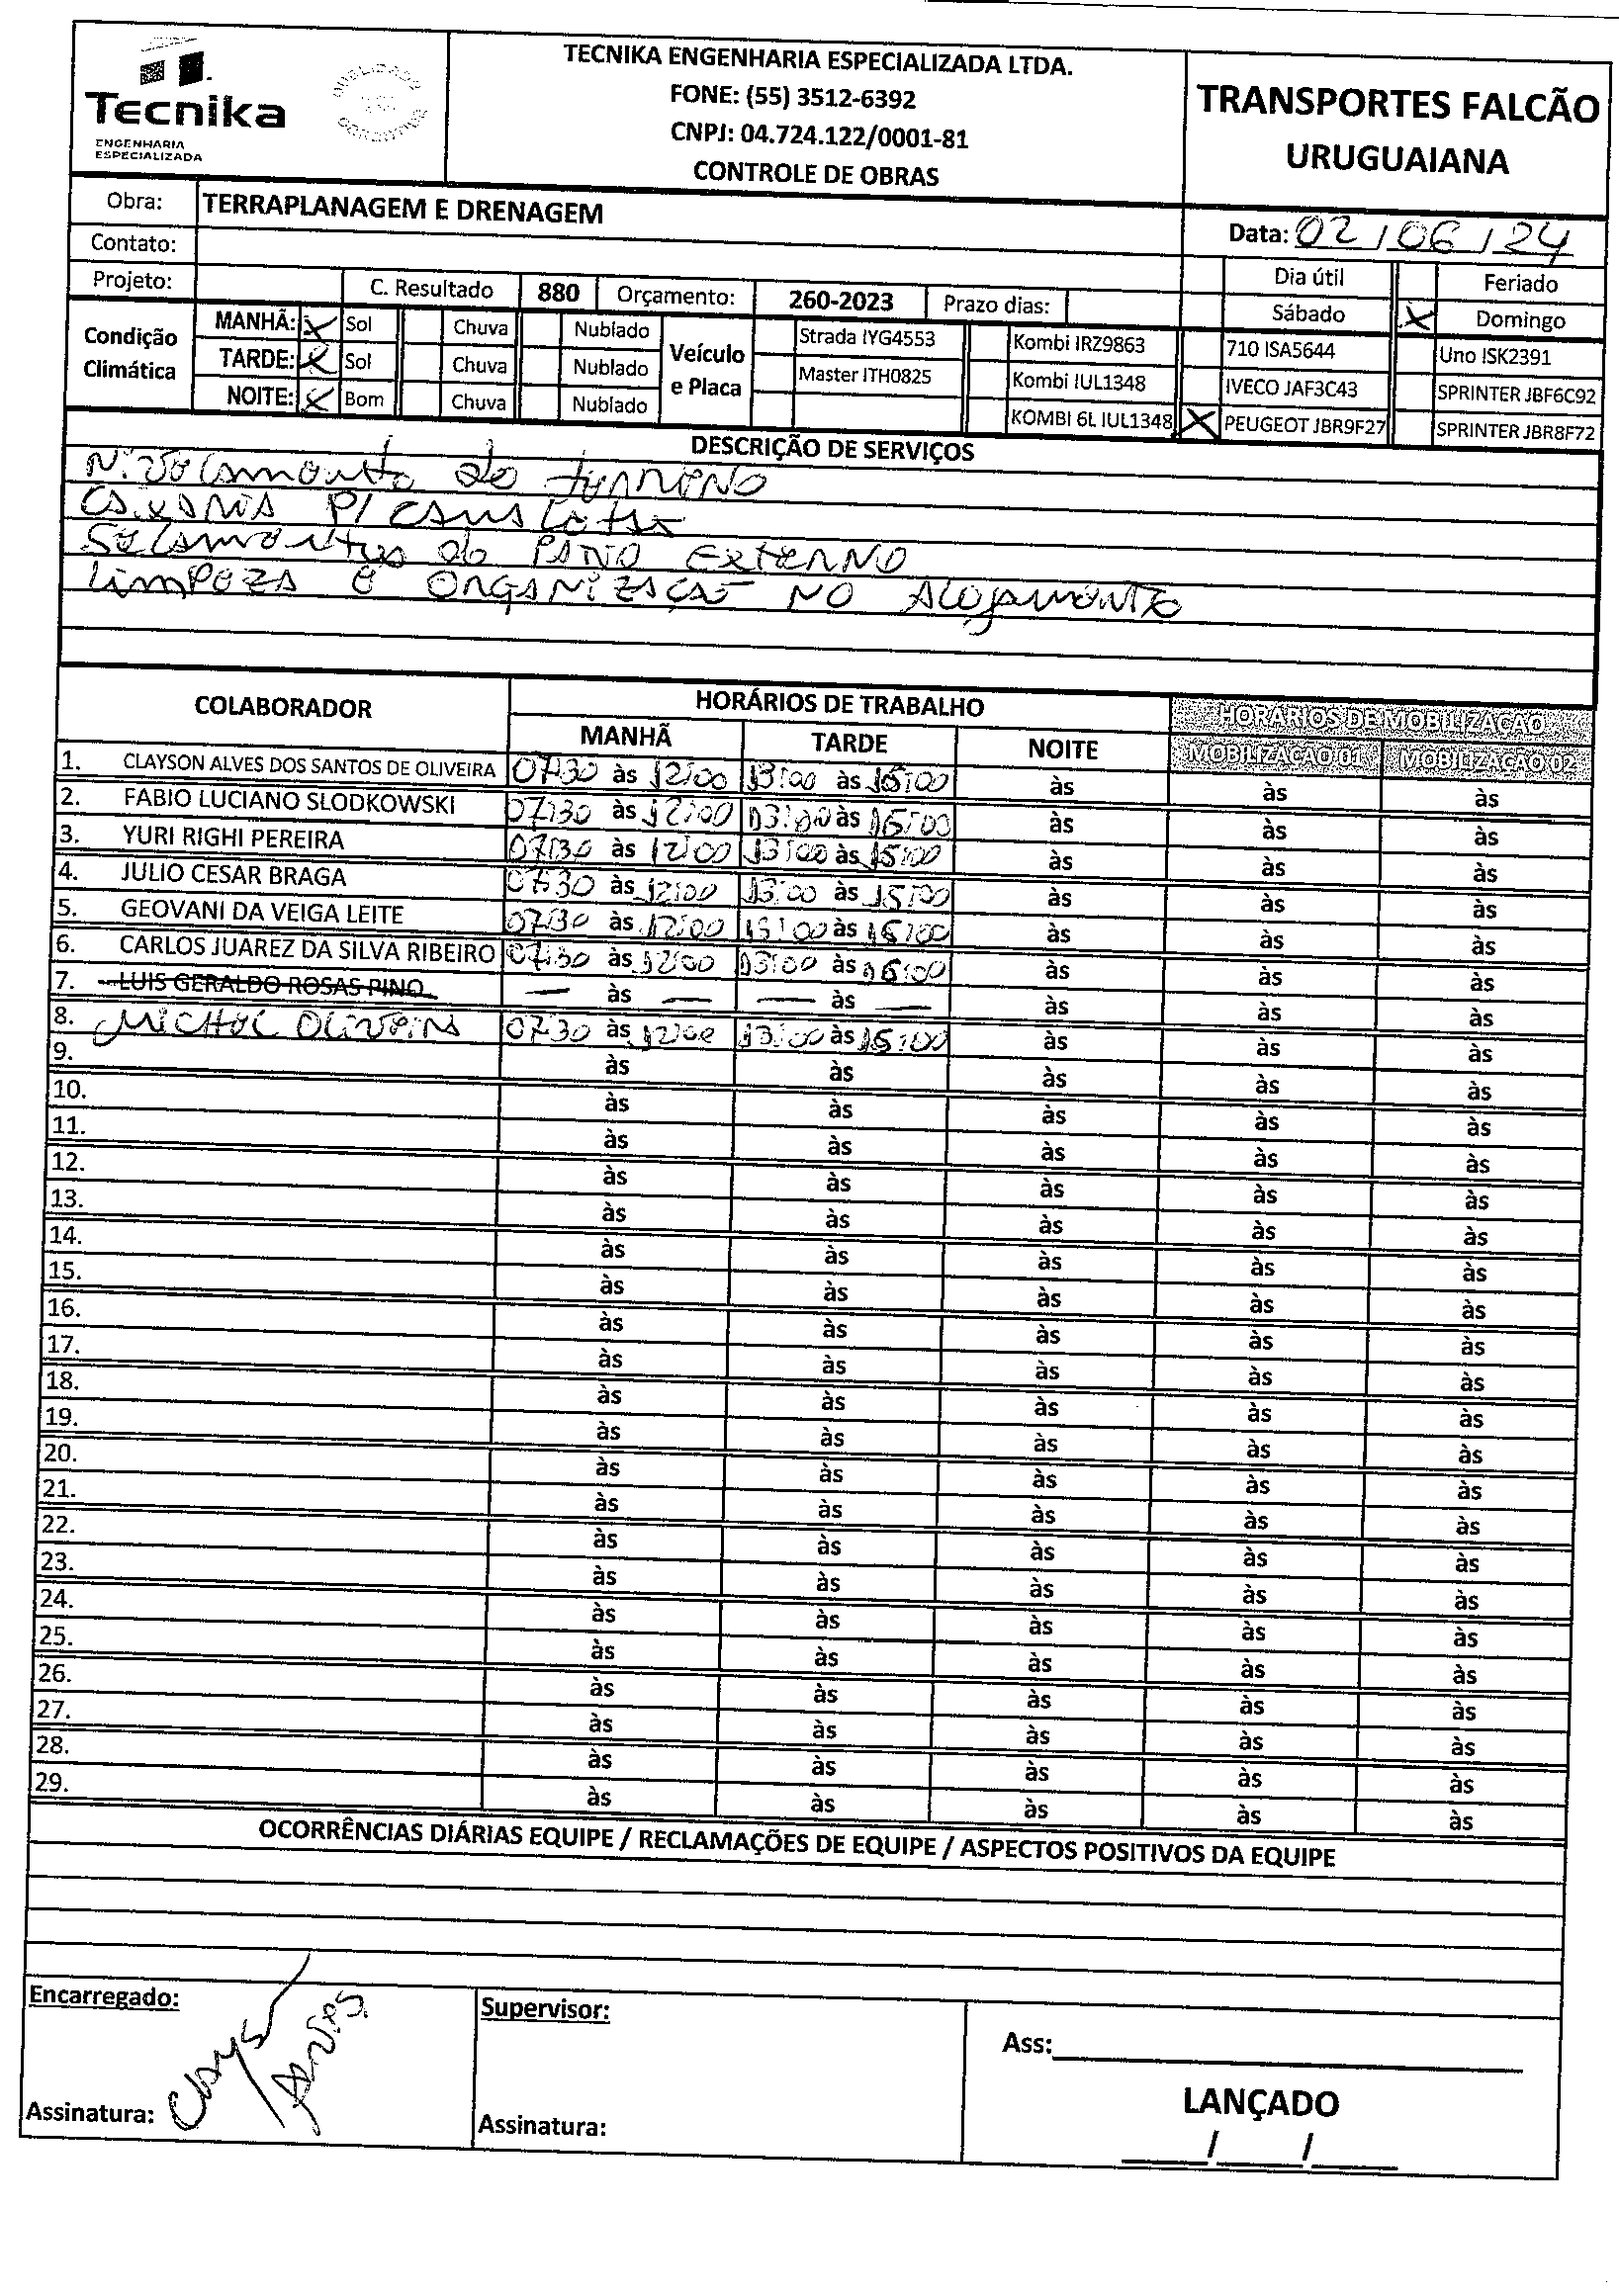 Tecnika
ENGENHARIA
ESPECIALIZADA
TECNIKA ENGENHARIA ESPECIALIZADA LTDA.
FONE: (55) 3512-6392
CNPJ: 04.724.122/0001-81
CONTROLE DE OBRAS
TRANSPORTES FALCÃO
URUGUAIANA
Obra: TERRAPLANAGEM E DRENAGEM
Data: 02/06/24
Contato:
Projeto: C. Resultado 880 Orçamento: 260-2023 Prazo dias:
Dia útil Feriado
Sábado X Domingo
Condição Climática
MANHÃ: X Sol Chuva Nublado
TARDE: X Sol Chuva Nublado
NOITE: X Bom Chuva Nublado
Veículo e Placa
Strada IYG4553 Kombi IRZ9863 710 ISA5644 Uno ISK2391
Master ITH0825 Kombi IUL1348 IVECO JAF3C43 SPRINTER JBF6C92
KOMBI 6L IUL1348 X PEUGEOT JBR9F27 SPRINTER JBR8F72
DESCRIÇÃO DE SERVIÇOS
do terreno
P/
do PATIO EXTERNO
LimPEZA e ORGANIZAÇÃO NO Alojamento
COLABORADOR HORÁRIOS DE TRABALHO HORÁRIOS DE MOBILIZAÇÃO
MANHÃ TARDE NOITE MOBILIZAÇÃO 01 MOBILIZAÇÃO 02
1. CLAYSON ALVES DOS SANTOS DE OLIVEIRA 07:30 às 12:00 13:00 às 15:00 às às às
2. FABIO LUCIANO SLODKOWSKI 07:30 às 12:00 13:00 às 15:00 às às às
3. YURI RIGHI PEREIRA 07:30 às 12:00 13:00 às 15:00 às às às
4. JULIO CESAR BRAGA 07:30 às 12:00 13:00 às 15:00 às às às
5. GEOVANI DA VEIGA LEITE 07:30 às 12:00 13:00 às 15:00 às às às
6. CARLOS JUAREZ DA SILVA RIBEIRO 07:30 às 12:00 13:00 às 15:00 às às às
7. LUIS GERALDO ROSAS PINO — às — — às — às às às
8. MICHEL OLIVEIRA 07:30 às 12:00 13:00 às 15:00 às às às
9. às às às às às
10. às às às às às
11. às às às às às
12. às às às às às
13. às às às às às
14. às às às às às
15. às às às às às
16. às às às às às
17. às às às às às
18. às às às às às
19. às às às às às
20. às às às às às
21. às às às às às
22. às às às às às
23. às às às às às
24. às às às às às
25. às às às às às
26. às às às às às
27. às às às às às
28. às às às às às
29. às às às às às
OCORRÊNCIAS DIÁRIAS EQUIPE / RECLAMAÇÕES DE EQUIPE / ASPECTOS POSITIVOS DA EQUIPE
Encarregado: Supervisor:
Ass:
LANÇADO
Assinatura: Assinatura:
/ /